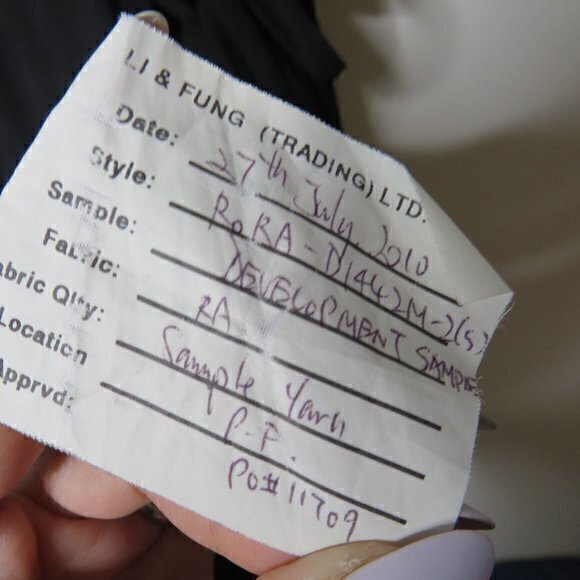 LI & FUNG (TRADING) LTD.
Date: 27th July 2010
Style: RoRA-D1442M-2(S)
Sample: DEVELOPMENT SAMPLE
Fabric: RA
abric Qty: Sample Yarn
Location P.F.
Apprvd: PO# 11709